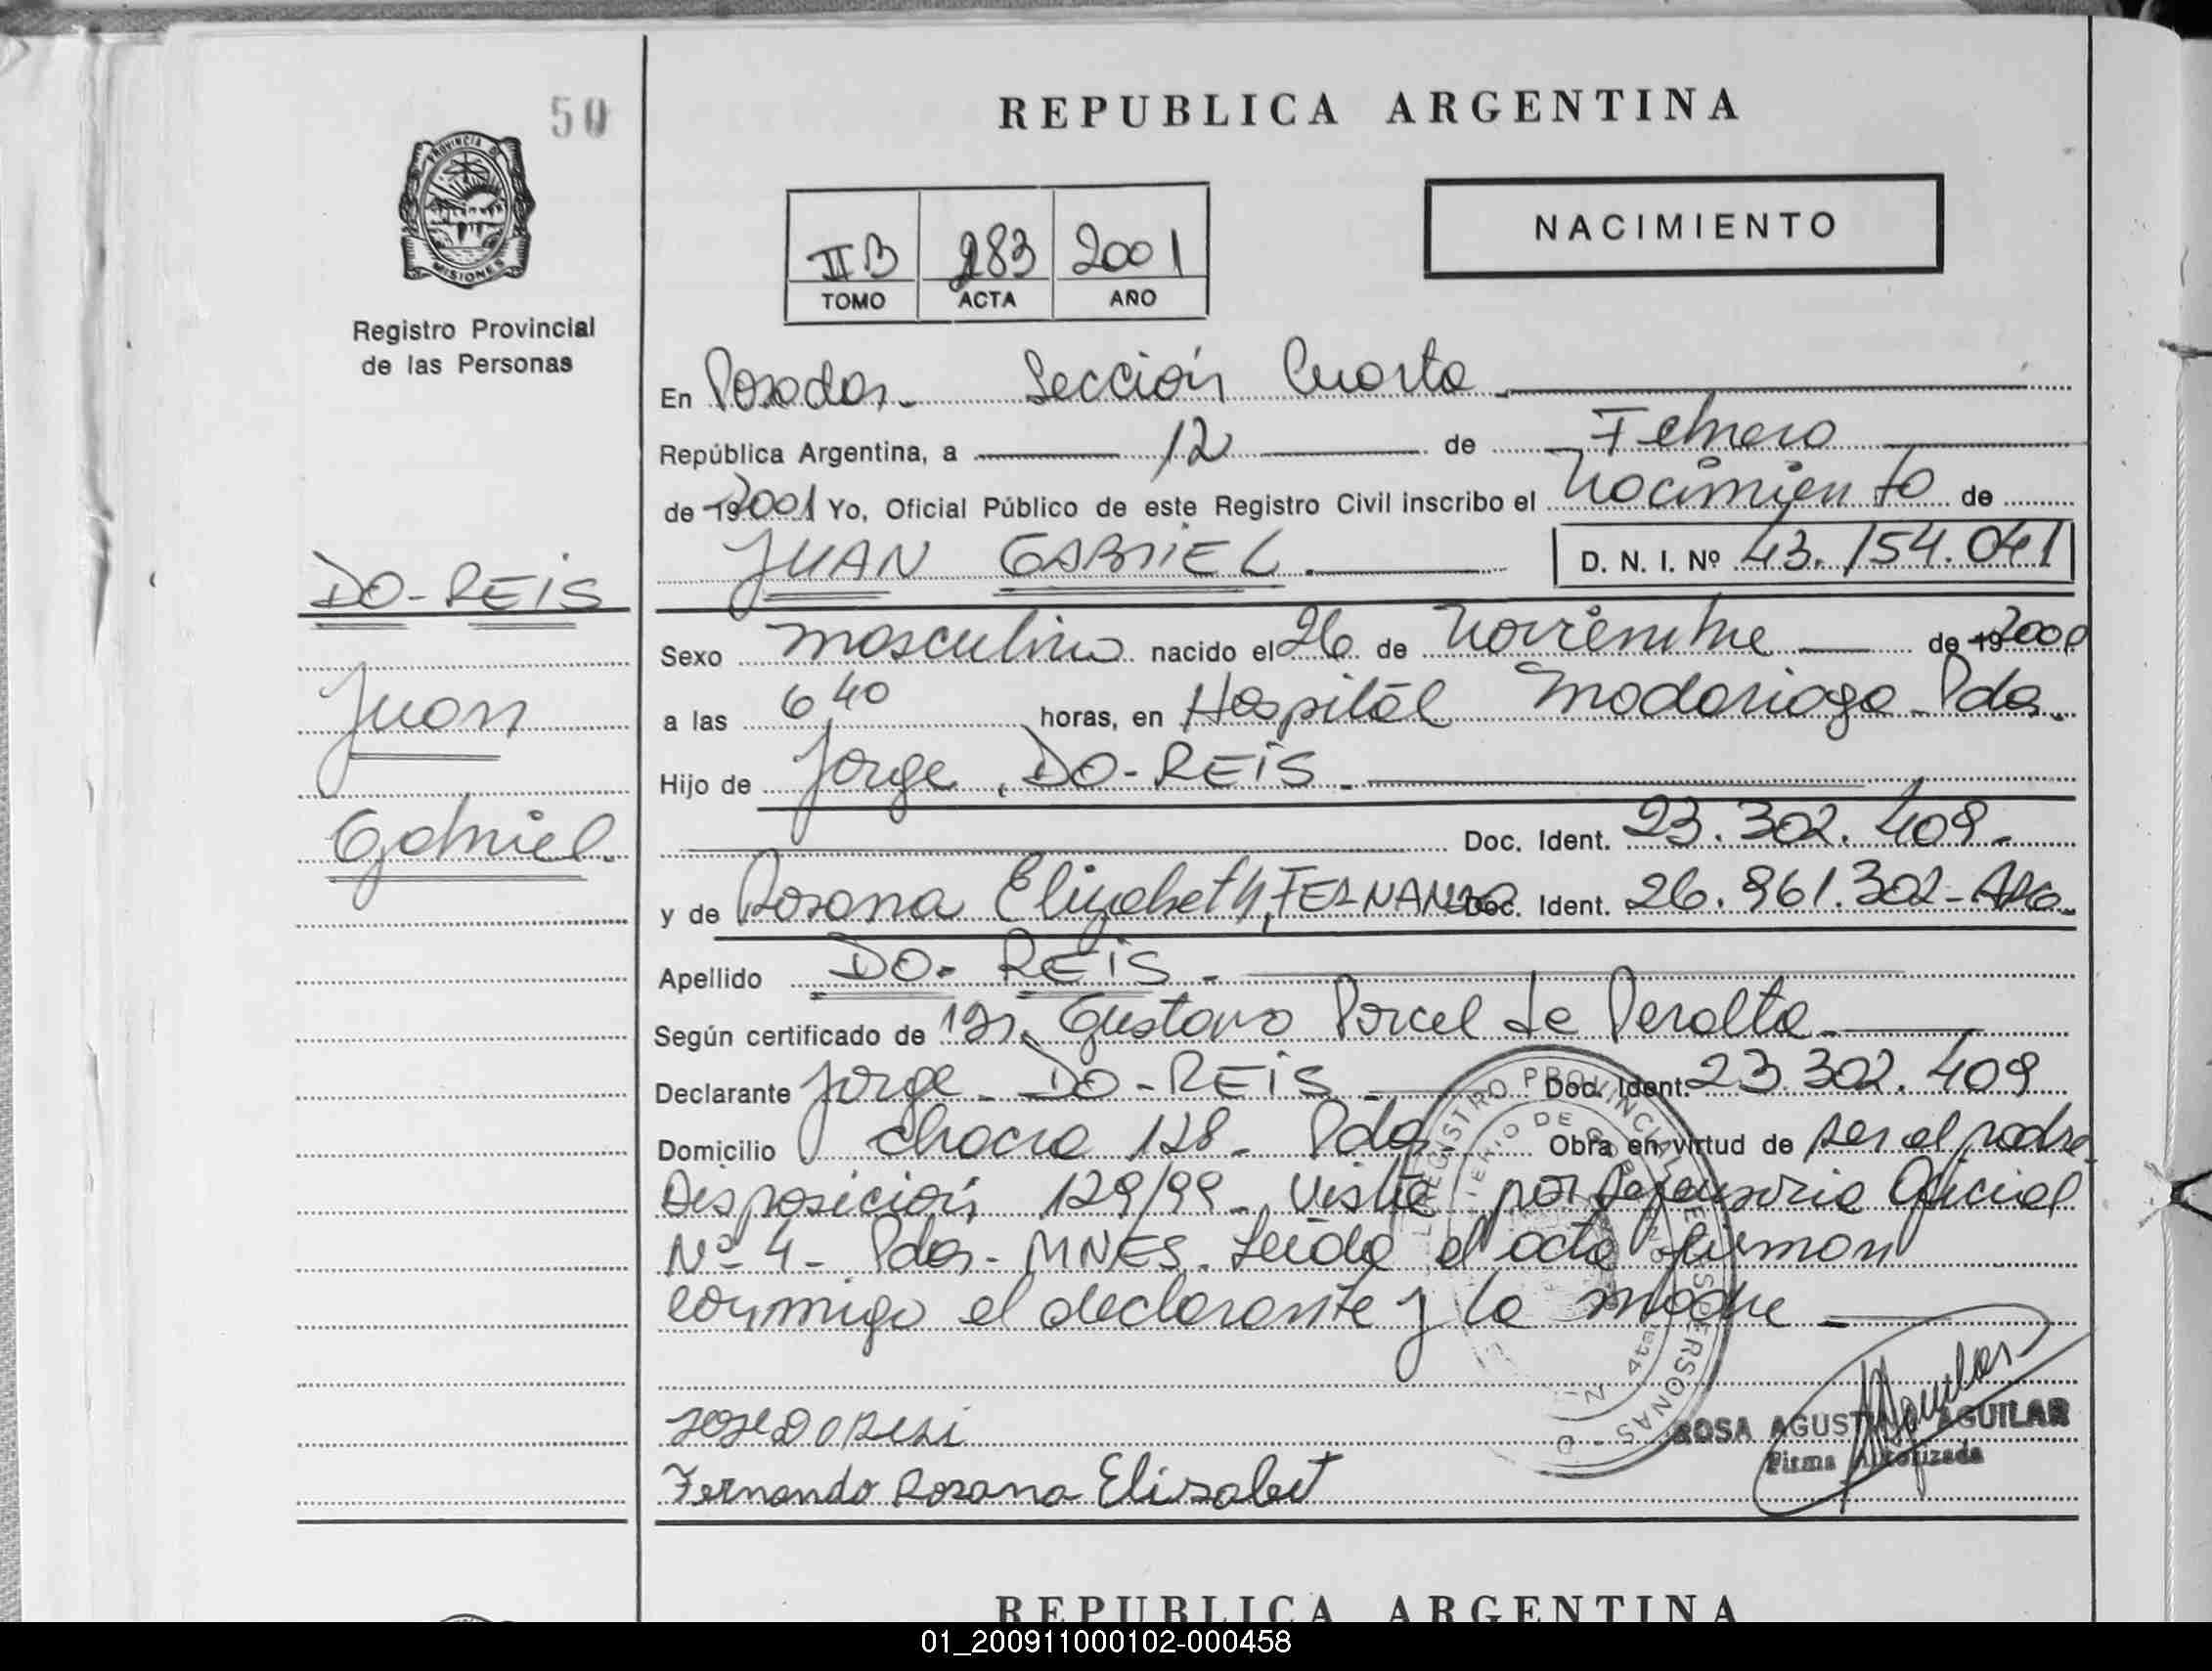 50
REPUBLICA ARGENTINA
PROVINCIA DE
MISIONES
Registro Provincial
de las Personas
NACIMIENTO
II B 283 2001
TOMO ACTA AÑO
En Posadas - Sección Cuarta
República Argentina, a 12 de Febrero
de 19 2001 Yo, Oficial Público de este Registro Civil inscribo el Nacimiento de
JUAN GABRIEL. D. N. I. Nº 43.154.041
DO-REIS
Juan
Gabriel.
Sexo masculino nacido el 26 de Noviembre de 19 2000
a las 6 40 horas, en Hospital Madariaga - Pdas.
Hijo de Jorge, DO-REIS -
Doc. Ident. 23.302.409 -
y de Rosana Elizabeth, FERNANDO Doc. Ident. 26.961.302 - ARG -
Apellido DO- REIS -
Según certificado de Dr. Gustavo Porcel de Peralta -
Declarante Jorge - DO-REIS Doc. Ident. 23.302.409
Domicilio Chacra 128 - Pdas - Obra en virtud de ser el padre.
Disposición 129/99 - Visita por Defensoria Oficial
Nº 4 - Pdas - MNES. Leída el acta firman
conmigo el declarante y la madre -
REGISTRO PROVINCIAL DE LAS PERSONAS
Fernando Rosana Elisabet
ROSA AGUSTINA AGUILAR
Firma Autorizada
REPUBLICA ARGENTINA
01_200911000102-000458